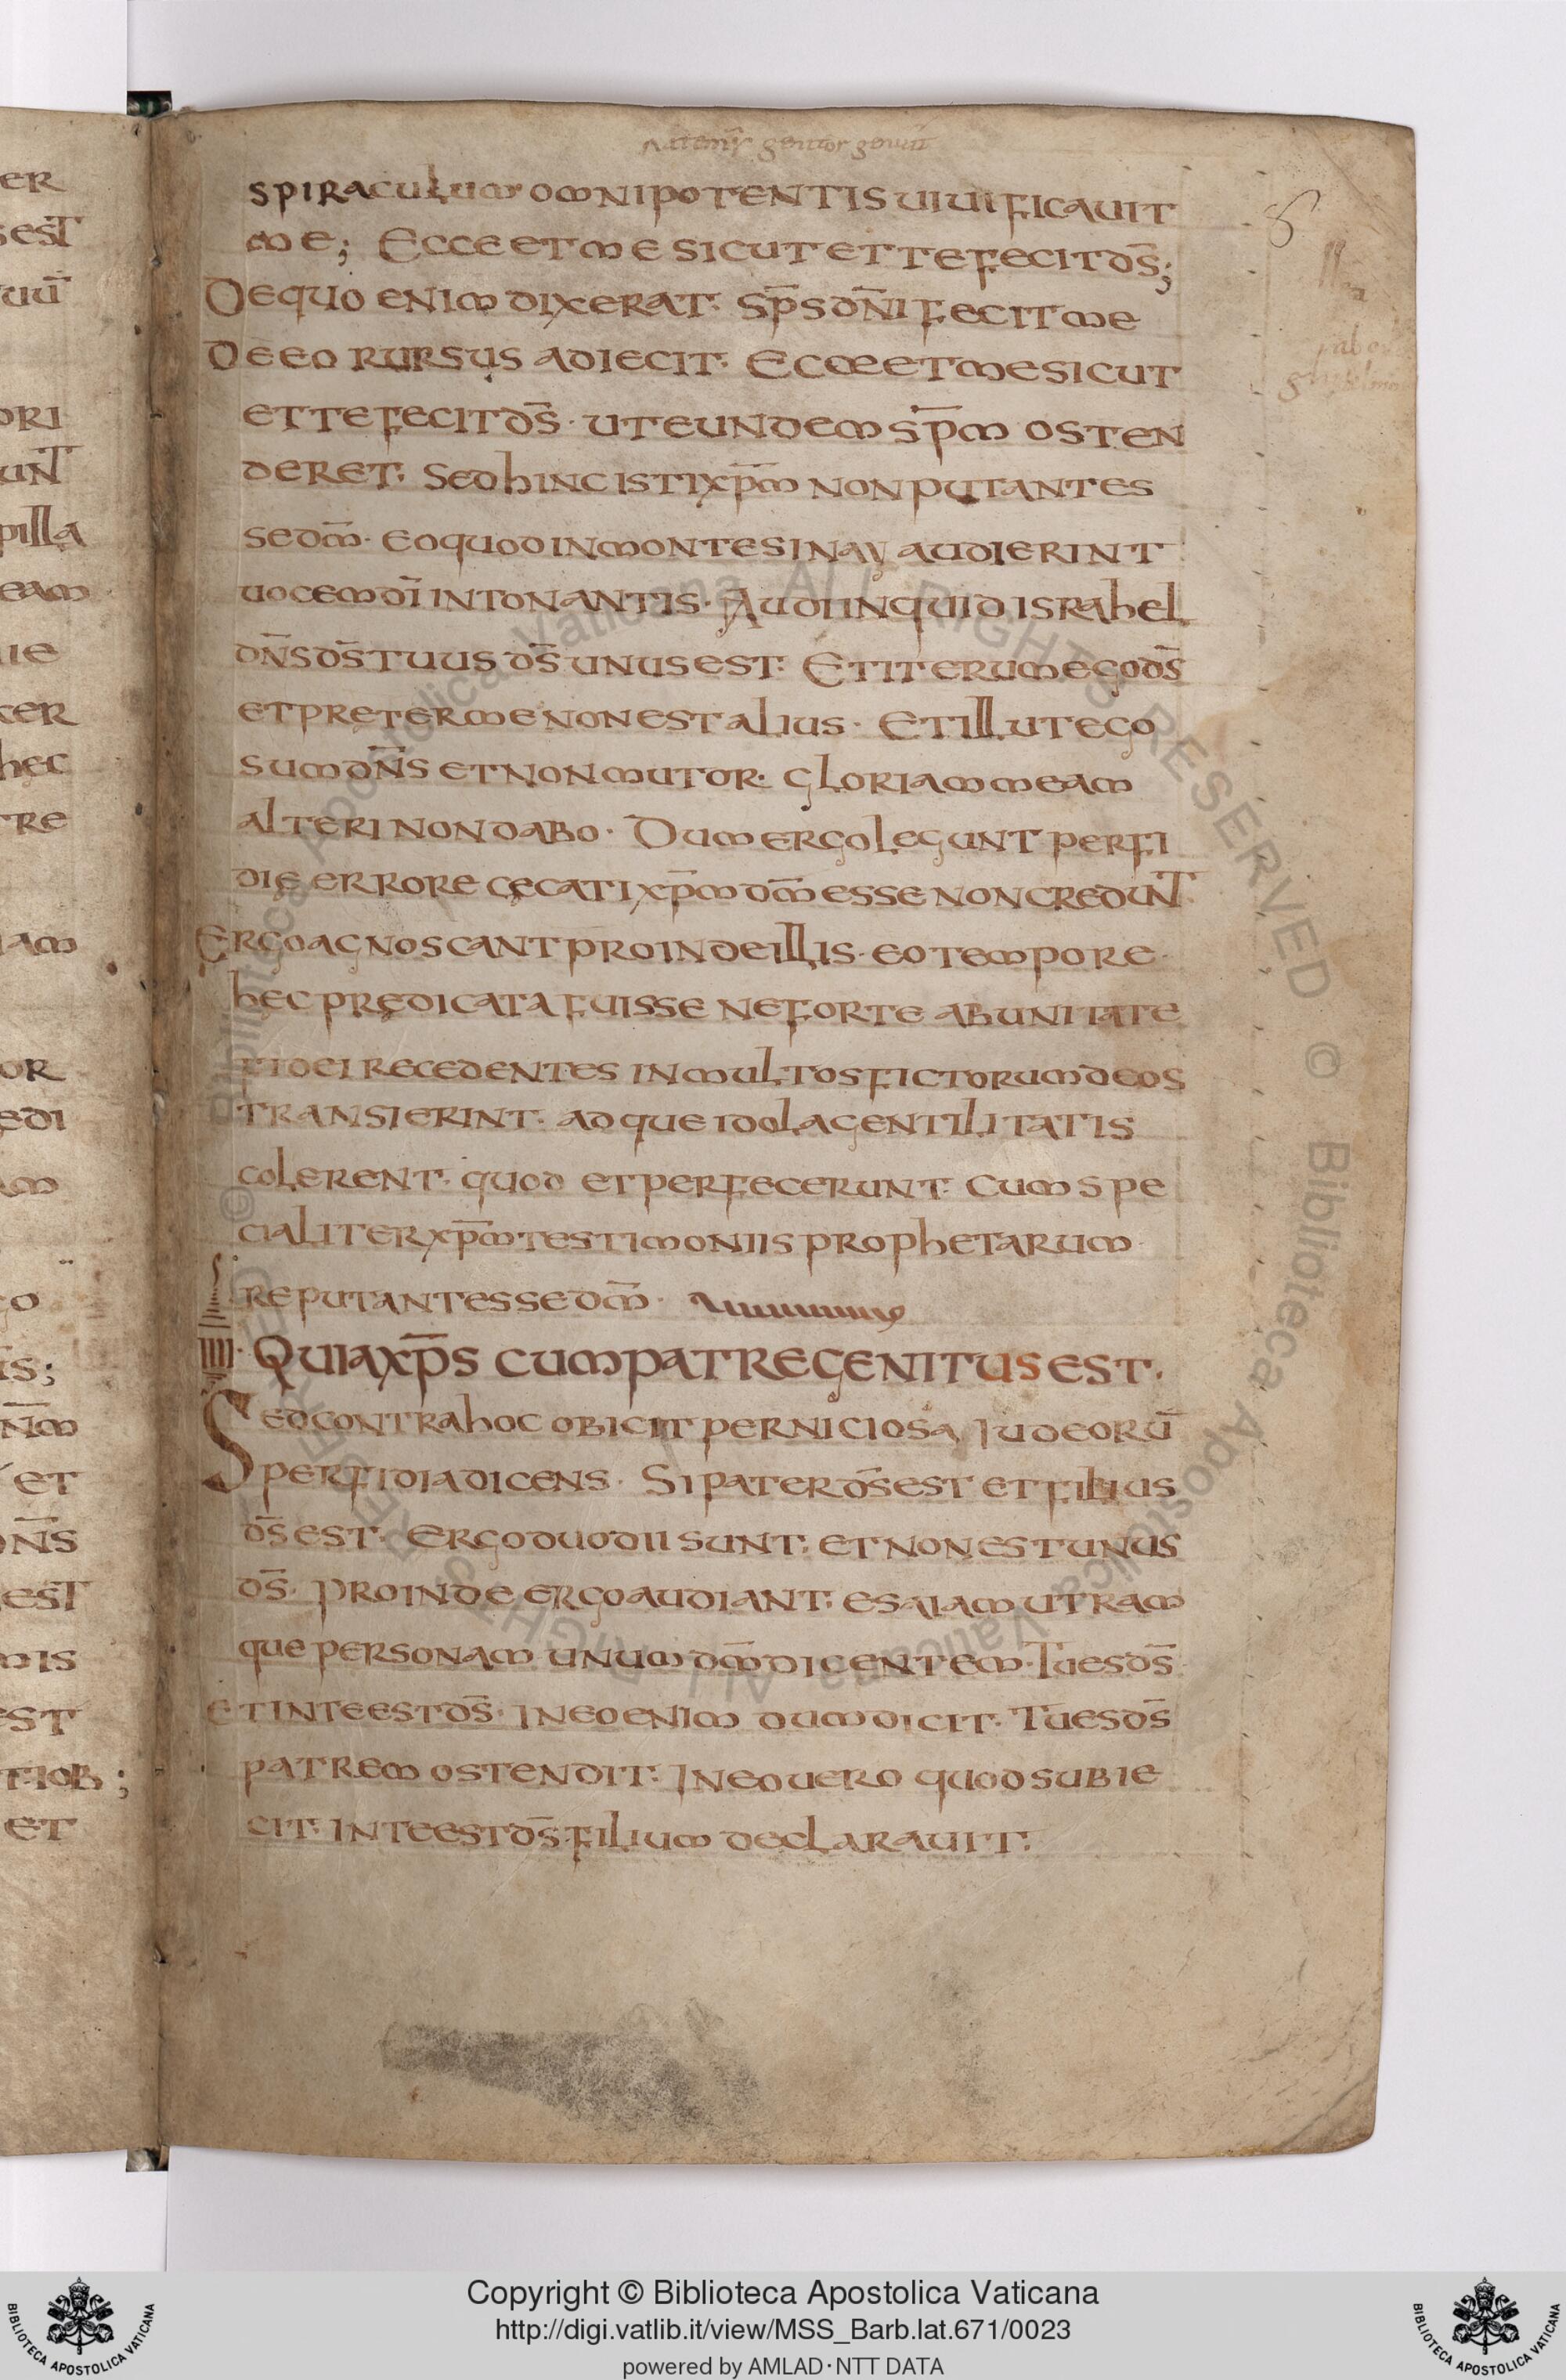 spiraculum omnipotentis uiuificauit
me; Ecce et me sicut et te fecit d̄s;
De quo enim dixerat· Sp̄s dn̄i fecit me
De eo rursus adiecit· Ecce et me sicut
et te fecit d̄s· ut eundem sp̄m osten
deret· Sed hinc isti xp̄m non putantes
se dm̄· eo quod in monte sinay audierint
uocem dī intonantis· Audi inquid israhel
dn̄s d̄s tuus d̄s unus est· Et iterum ego d̄s
et pręter me non est alius· Et illut ego
sum dn̄s et non mutor· gloriam meam
alteri non dabo· Dum ergo legunt perfi
dię errore cęcati xp̄m dm̄ esse non credunt
Ergo agnoscant proinde illis· eo tempore·
hec prędicata fuisse ne forte ab unitate
fidei recedentes in multos fictorum deos
transierint· adque idola gentilitatis
colerent· quod et perfecerunt· Cum spe
cialiter xp̄m testimoniis prophetarum
reputantes se dm̄·
IIII· Quia xp̄s cum patre genitus est·
Sed contra hoc obicit perniciosa Iudeorū
perfidia dicens· Si pater d̄s est et filius
d̄s est· Ergo duo dii sunt· et non est unus
d̄s· Proinde ergo audiant· esaiam utram
que personam unum dm̄ dicentem· Tu es d̄s
et in te est d̄s· In eo enim dum dicit· Tu es d̄s
patrem ostendit· In eo uero quod subie
cit· in te est d̄s· filium declarauit·
er
est
uū
ori
unt
pilla
eam
ie
cer
hec
tre
iam
or
edi
am
go
is;
nm̄
et
dn̄s
est
mis
est
t iob;
et
8
Copyright © Biblioteca Apostolica Vaticana
http://digi.vatlib.it/view/MSS_Barb.lat.671/0023
powered by AMLAD·NTT DATA
BIBLIOTECA APOSTOLICA VATICANA
BIBLIOTECA APOSTOLICA VATICANA
© Biblioteca Apostolica Vaticana ALL RIGHTS RESERVED
© Biblioteca Apostolica Vaticana ALL RIGHTS RESERVED